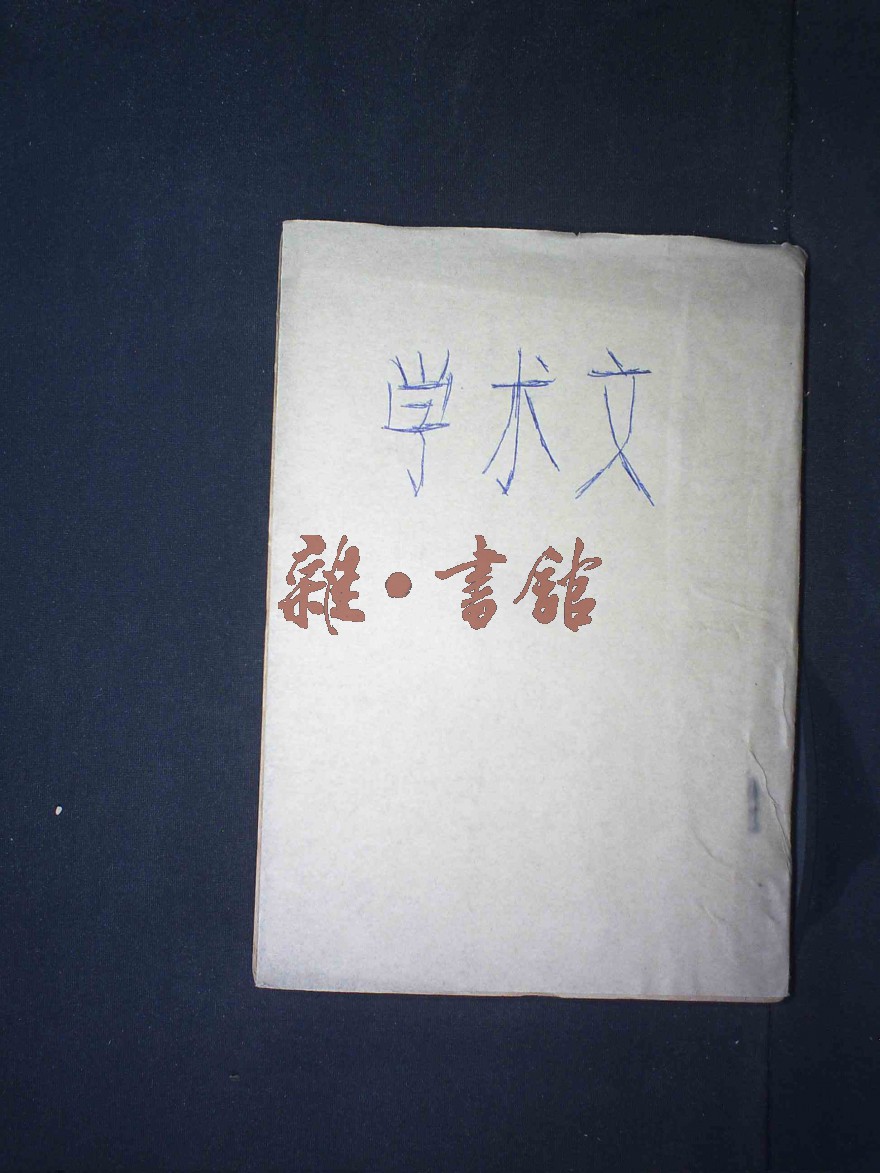 学术文
雜·書館